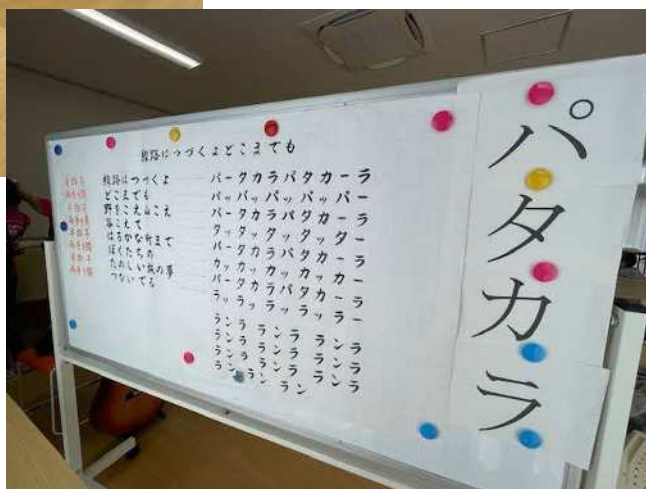 線路はつづくよどこまでも
線路はつづくよ パータカラパタカーラ
どこまでも パッパッパッパッパー
野をこえ山こえ パータカラパタカーラ
谷こえて タッタッタッタッター
はるかな町まで パータカラパタカーラ
ぼくたちの カッカッカッカッカー
たのしい旅の夢 パータカラパタカーラ
つないでる ラッラッラッラッラー
ランランランラン
ランランランラン
ランランランラン
ランランラン
パタカラ